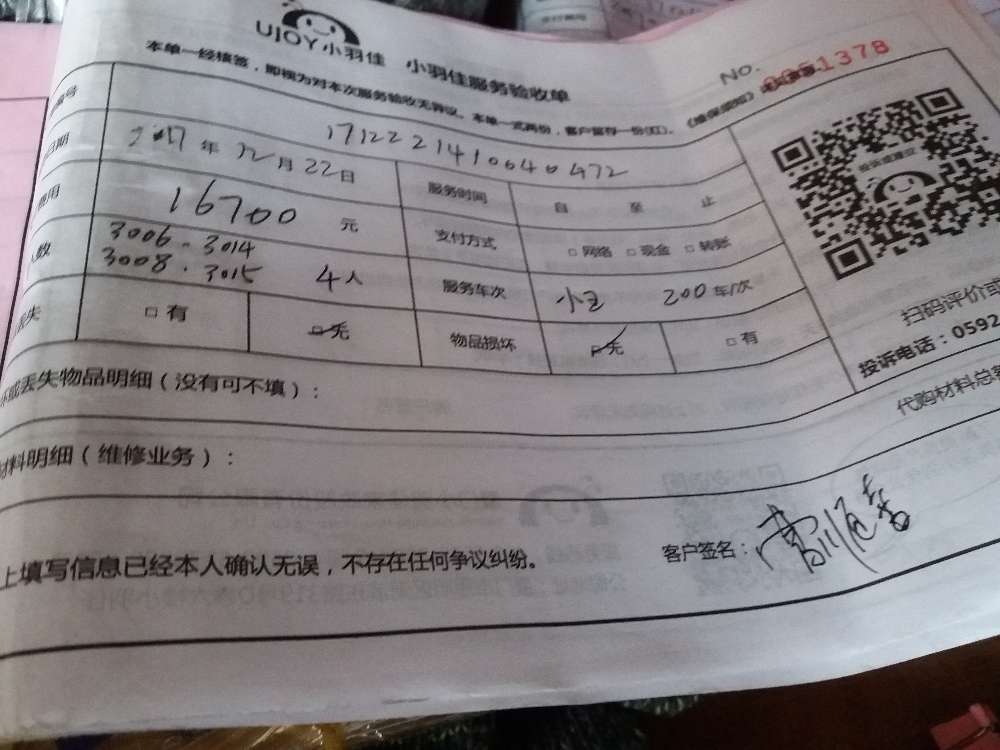 UJOY小羽佳 小羽佳服务验收单
No. 1378
本单一经核签，即视为对本次服务验收无异议。本单一式两份，客户留存一份(红)。《维保须知》
编号 17122214100640472
日期 2017年12月22日 服务时间 自 至 止
费用 16700 元 支付方式 □网络 □现金 □转账
数 3006.3014
3008.3015 4人 服务车次 200车/次
丢失 □有 □无 物品损坏 □无 □有
扫码评价或
投诉电话：0592
或丢失物品明细（没有可不填）：
代购材料总
材料明细（维修业务）：
上填写信息已经本人确认无误，不存在任何争议纠纷。 客户签名：